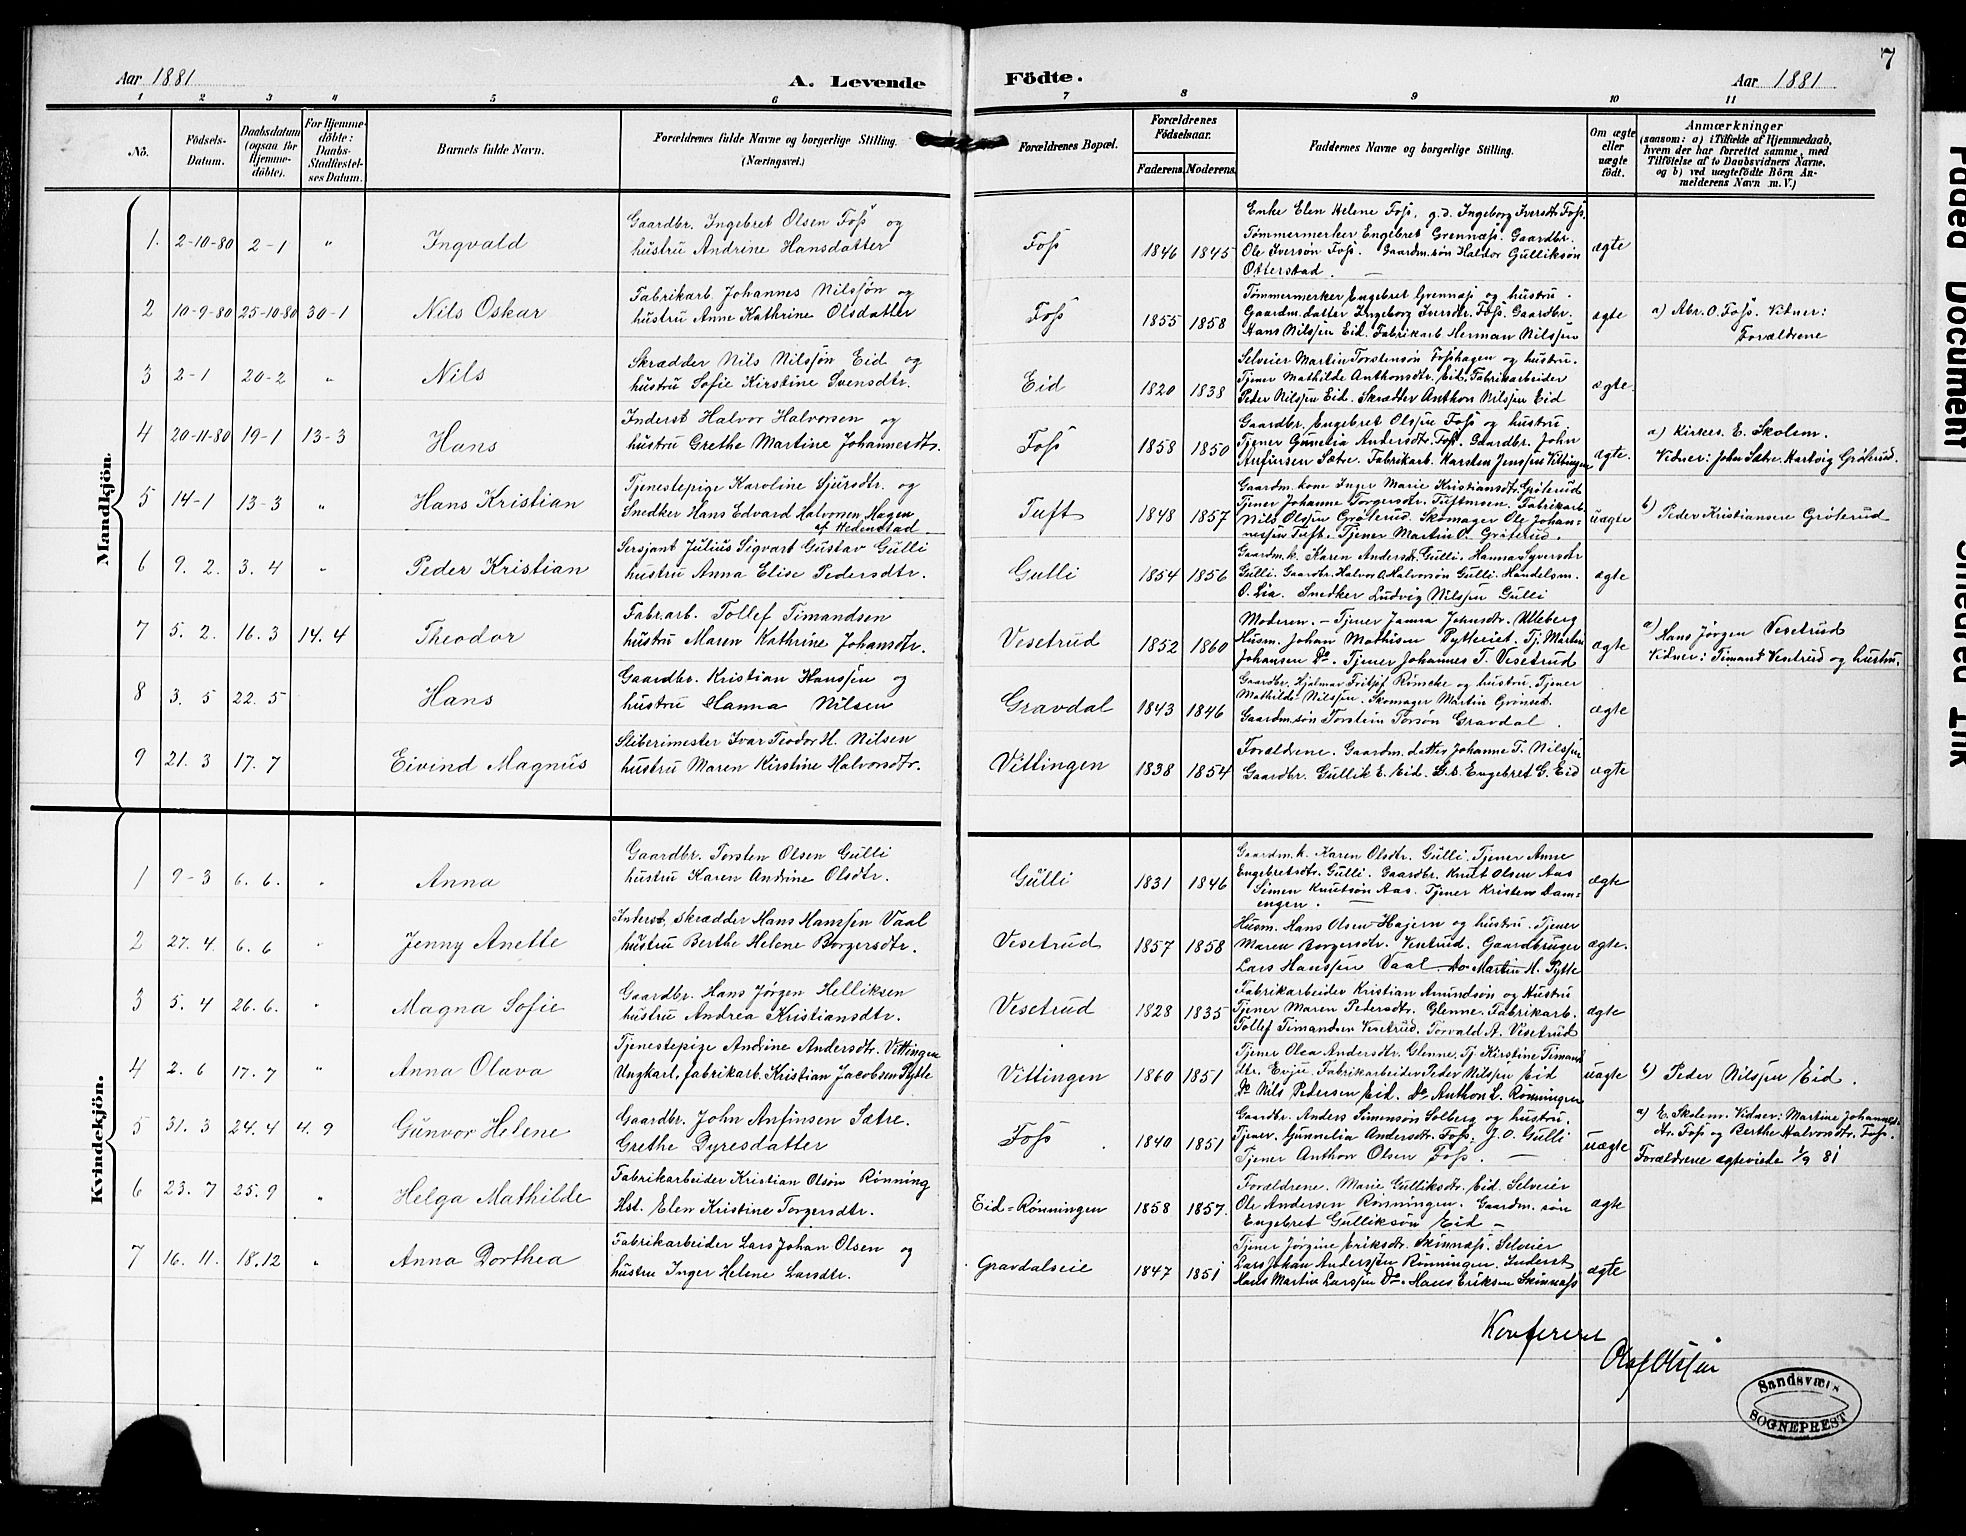 7
Aar 1881
A. Levende
Födte.
Aar 1881
1 2 3 4 5 6 7 8 9 10 11
No.
Födsels-
Datum.
Daabsdatum
(ogsaa for
Hjemme-
döbte).
For Hjemme-
döbte:
Daabs-
Stadfæstel-
ses Datum.
Barnets fulde Navn.
Forældrenes fulde Navne og borgerlige Stilling.
(Næringsvei.)
Forældrenes Bopæl.
Forældrenes
Födselsaar.
Faderens. Moderens.
Faddernes Navne og borgerlige Stilling.
Om ægte
eller
uægte
födt.
Anmærkninger
(saasom: a) i Tilfælde af Hjemmedaab,
hvem der har forrettet samme, med
Tilföielse af to Daabsvidners Navne,
og b) ved uægtefödte Börn An-
melderens Navn m. V.)
Mandkjön.
1. 2-10-80 2-1 " Ingvald
Gaardbr. Ingebret Olsen Foss og
hustru Andrine Hansdatter
Foss 1846 1845
Enke Elen Helene Foss. g.d. Ingeborg Iversdtr Foss.
Tømmermerker Engebret Grennæss. Gaardbr.
Ole Iversøn Foss. Gaardm.søn Haldor Gulliksøn
Otterstad. —
ægte
2 10-9-80 25-10-80 30-1 Nils Oskar
Fabrikarb. Johannes Nilssøn og
hustru Anne Kathrine Olsdatter
Foss 1855 1858
Tømmermerker Engebret Grennæss og hustru.
Gaardm.datter Ingeborg Iversdtr. Foss. Gaardbr.
Hans Nilssen Eid. Fabrikarb. Herman Nilssen
ægte
a) Abr. O. Foss. Vidner:
Forældrene
3 2-1 20-2 " Nils
Skrædder Nils Nilssøn Eid og
hustru Sofie Kirstine Svensdtr.
Eid 1820 1838
Selveier Martin Torstensøn Fosshagen og hustru.
Tjener Mathilde Anthonsdtr. Eid. Fabrikarbeider
Peder Nilssen Eid. Skrædder Anthon Nilssen Eid
ægte.
4 20-11-80 19-1 13-3 Hans
Inderst Halvor Halvorsen og
hustru Grethe Martine Johannesdtr.
Foss 1858 1850
Gaardbr. Engebret Olssen Foss og hustru.
Tjener Gunelia Andersdtr. Foss. Gaardbr. John
Anfinsen Sætre. Fabrikarb. Karsten Jenssen Vittingen
ægte.
a) Kirkes. E. Skolem.
Vidner: John Sætre. Hartvig Grøterud.
5 14-1 13-3 " Hans Kristian
Tjenestepige Karoline Sjursdtr. og
Snedker Hans Edvard Halvorsen Hagen
af Hedenstad
Tuft 1848 1857
Gaardm. kone Inger Marie Kristiansdtr. Grøterud
Tjener Johanne Torgersdtr. Tuftmoen. Fabrikarb.
Nils Olssen Grøterud. Skomager Ole Johan-
nessen Tuft. Tjener Martin O. Grøterud.
uægte
b) Peder Kristiansen Grøterud
6 9. 2. 3. 4 " Peder Kristian
Sersjant Julius Sigvart Gustav Gulli
hustru Anna Elise Pedersdtr.
Gulli 1854 1856
Gaardm. k. Karen Andersdtr. Gulli. Hanna Syversdtr
Gulli. Gaardbr. Halvor O. Halvorsøn Gulli. Handelsm.
O. Lia. Snedker Ludvig Nilssen Gulli
ægte
7 5. 2. 16. 3 14. 4 Theodor
Fabr.arb. Tollef Timandsen
hustru Maren Kathrine Johansdtr.
Vesetrud 1852 1860
Moderen. — Tjener Janna Johnsdtr. Ulleberg
Husm. Johan Mathisen Pytteriet. Tj. Martin
Johansen Do. Tjener Johannes T. Vesetrud
ægte
a) Hans Jørgen Vesetrud
Vidner: Timand Ventrud og hustru.
8 3. 5 22. 5 Hans
Gaardbr. Kristian Hanssen og
hustru Hanna Nilsen
Gravdal 1843 1846
Gaardbr. Hjalmar Fritjof Römcke og hustru. Tjener
Mathilde Nilssen. Skomager Martin Grönset.
Gaardm.søn Torstein Torsøn Gravdal.
ægte
9 21. 3 17. 7 Eivind Magnus
Sliberimester Ivar Teodor H. Nilsen
hustru Maren Kirstine Halvorsdtr.
Vittingen 1838 1854
Forældrene. Gaardm. datter Johanne T. Nilssen
Gaardbr. Gullik E. Eid. G.s. Engebret G. Eid
ægte
Kvindekjön.
1 9-3 6. 6. " Anna
Gaardbr. Torsten Olsen Gulli
hustru Karen Andrine Olsdtr.
Gulli 1831 1846
Gaardm. k. Karen Olsdtr. Gulli. Tjener Anne
Engebretsdtr. Gulli. Gaardbr. Knut Olsen Aas
Simen Knutsøn Aas. Tjener Kristen Dam-
engen. —
ægte
2 27. 4. 6. 6 " Jenny Anette
Inderst, Skrædder Hans Hanssen Vaal
hustru Berthe Helene Borgersdtr.
Vesetrud 1857 1858
Husm. Hans Olsen Hajern og hustru. Tjener
Maren Borgersdtr. Ventrud. Gaardbruger
Lars Hanssen Vaal. Do Martin M. Pytte
ægte.
3 5. 4 26. 6. " Magna Sofie
Gaardbr. Hans Jørgen Helliksen
hustru Andrea Kristiansdtr.
Vesetrud 1828 1835
Fabrikarbeider Kristian Amundsøn og Hustru
Tjener Maren Pedersdtr. Glenne. Fabrikarb.
Tollef Timandsen Vesetrud. Torvald A. Vesetrud
ægte
4 2. 6 17. 7 " Anna Olava
Tjenestepige Andrine Andersdtr. Vittingen
Ungkarl, fabrikarb. Kristian Jacobsen Pytte
Vittingen 1860 1851
Tjener Olea Andersdtr. Glenne. Tj. Kirstine Timand
dtr. Evju. Fabrikarbeider Peder Nilssen Eid
Do Nils Pedersen Eid. Do Anthon L. Rønningen
uægte
b) Peder Nilssen Eid.
5 31. 3 24. 4 4. 9 Gunvor Helene
Gaardbr. John Anfinsen Sætre.
Grethe Dyresdatter
Foss 1840 1851
Gaardbr. Anders Simensøn Solberg og hustru.
Tjener. Gunnelia Andersdtr. Foss. J. O. Gulli
Tjener Anthon Olsen Foss. —
uægte
a) E. Skolem. Vidner: Martine Johannes-
dtr. Foss og Berthe Halvorsdtr. Foss.
Forældrene ægteviede 1/9 81
6 23. 7 25. 9 " Helga Mathilde
Fabrikarbeider Kristian Olsøn Rønning
Hst. Elen Kristine Torgersdtr.
Eid-Rønningen 1858 1857.
Forældrene. Marie Gulliksdtr. Eid. Selveier
Ole Andersen Rønningen. Gaardm. søn
Engebret Gulliksøn Eid —
ægte
7 16. 11. 18. 12 " Anna Dorthea
Fabrikarbeider Lars Johan Olsen og
hustru Inger Helene Larsdtr.
Gravdalseie 1847 1851
Tjener Jørgine Eriksdtr. Skinnæss. Selveier
Lars Johan Anderssøn Rønningen. Inderst
Hans Martin Larssen Do. Hans Eriksen Skinnæss
ægte
Konfereret
Olaf Olssen
Sandsværs
SOGNEPREST
Faded Document
Smeared Ink